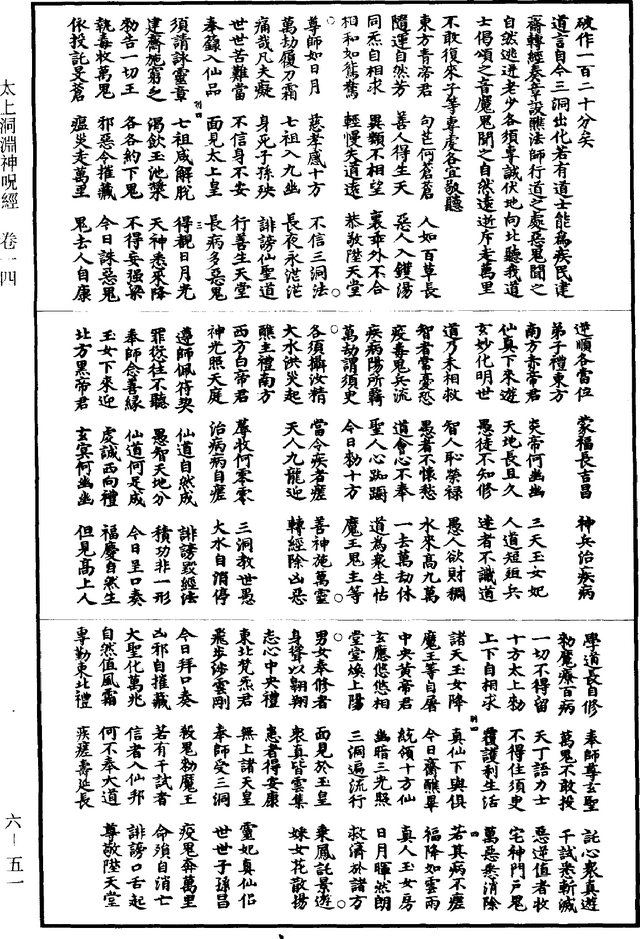 破作一百二十分矣
道言自今三洞出化若有道士能為疾民建
齋轉經奏章設醮法師行道之處惡鬼聞之
自然逃迸老少各須專誠伏地向北聽我道
士偈頌之音魔鬼聞之自然遠逝斥走萬里
不敢復來子等專虔各宜敬聽
東方青帝君 句芒何蒼蒼 人如百草長
隨運自然芳 善人得生天 惡人入鑊湯
同炁自相求 異類不相望 裏乖外不合
相和如鴛鴦 輕慢失道遠 恭敬陞天堂
尊師如日月 慈孝感十方 不信三洞法
萬劫履刀霜 七祖入九幽 長夜永茫茫
痛哉凡夫癡 身死子孫殃 誹謗仙聖道
世世苦難當 不信身不安 行善生天堂
奉籙入仙品 面見太上皇 長病多惡鬼
須請詠靈章 七祖咸解脫 得覩日月光
建齋施窮乏 渴飲玉池漿 天神悉來降
勑告一切王 各各約下鬼 不得妄強梁
執毒收萬鬼 邪惡令摧藏 今日誅惡鬼
依投託旻蒼 瘟災走萬里 鬼去人自康
逆順各當位 蒙福長吉昌 神兵治疾病
弟子禮東方
南方赤帝君 炎帝何幽幽 三天玉女妃
仙真下來遊 天地長且久 人道短俎兵
玄妙化明世 愚徒不知修 達者不識道
道乃未相救 智人恥榮祿 愚人欲財稠
智者常憂恐 愚者不懷愁 水來高九萬
疫毒鬼兵流 道會心不奉 一去萬劫休
疾病陽所羇 聖人心踟躕 道為衆生怙
萬劫謂須臾 今日勑十方 魔王鬼主等
各須攝汝精 當令疾者瘥 善神施萬靈
大水洪災起 天人九龍迎 轉經除凶惡
醮主禮南方
西方白帝君 蓐收何零零 三洞教世愚
神光照天庭 治病病自瘥 大水自消停
遵師佩符契 仙道自然成 誹謗毀經法
罪從往不聽 愚智天地分 積功非一形
奉師念善緣 仙道何足成 今日呈口奏
玉女下來迎 虔誠西向禮 福慶自然生
北方黑帝君 玄冥何幽幽 但見高上人
學道長自修 奉師尊玄聖 託心衆真遊
勑魔療百病 萬鬼不敢投 千試悉斬滅
一切不得留 天丁語力士 惡逆值者收
十方太上勑 不得住須臾 宅神門戶鬼
上下自相求 覆護利生活 萬惡悉消除
諸天玉女降 真仙下與俱 若其病不瘥
魔王等自屠 今日齋醮畢 福降如雲雨
中央黃帝君 統領十方仙 真人玉女房
玄應悠悠相 幽暗三光照 日月暉然朗
堂堂煥上陽 三洞遍流行 救濟於諸方
男女奉修者 面見於玉皇 乘鳳託景遊
身聳以翱翔 衆真皆雲集 婇女花散揚
志心中央禮 患者得安康
東北梵炁君 無上諸天皇 靈妃真仙侶
飛步涉雲剛 奉師受三洞 世世子孫昌
今日拜口奏 殺鬼勑魔王 疫鬼奔萬里
凶邪自摧藏 若有干試者 命須自消亡
大聖化萬兆 信者入仙邦 誹謗口舌起
自然值風霜 何不奉大道 尊敬陞天堂
專勤東北禮 疾瘥壽延長
太上洞淵神呪經 卷一四
六—五一